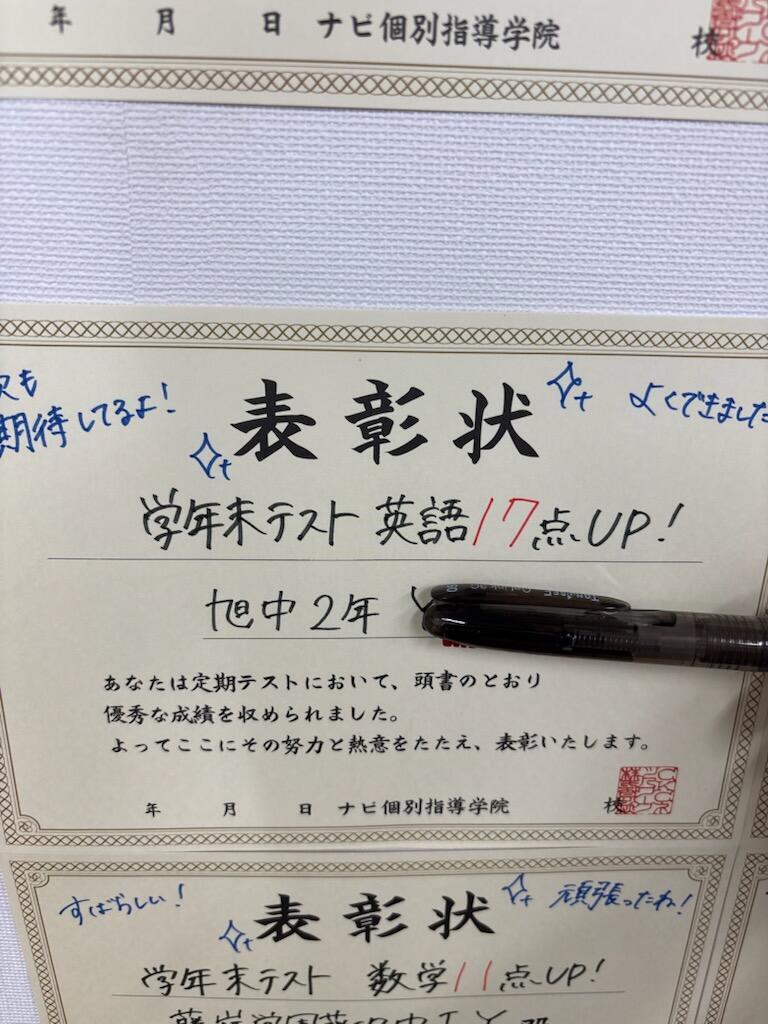 年 月 日 ナビ個別指導学院 校
次も
期待してるよ！
表彰状
よくできました
学年末テスト 英語17点UP！
旭中2年
あなたは定期テストにおいて、頭書のとおり
優秀な成績を収められました。
よってここにその努力と熱意をたたえ、表彰いたします。
年 月 日 ナビ個別指導学院 校
すばらしい！
表彰状
頑張ったね！
学年末テスト 数学11点UP！